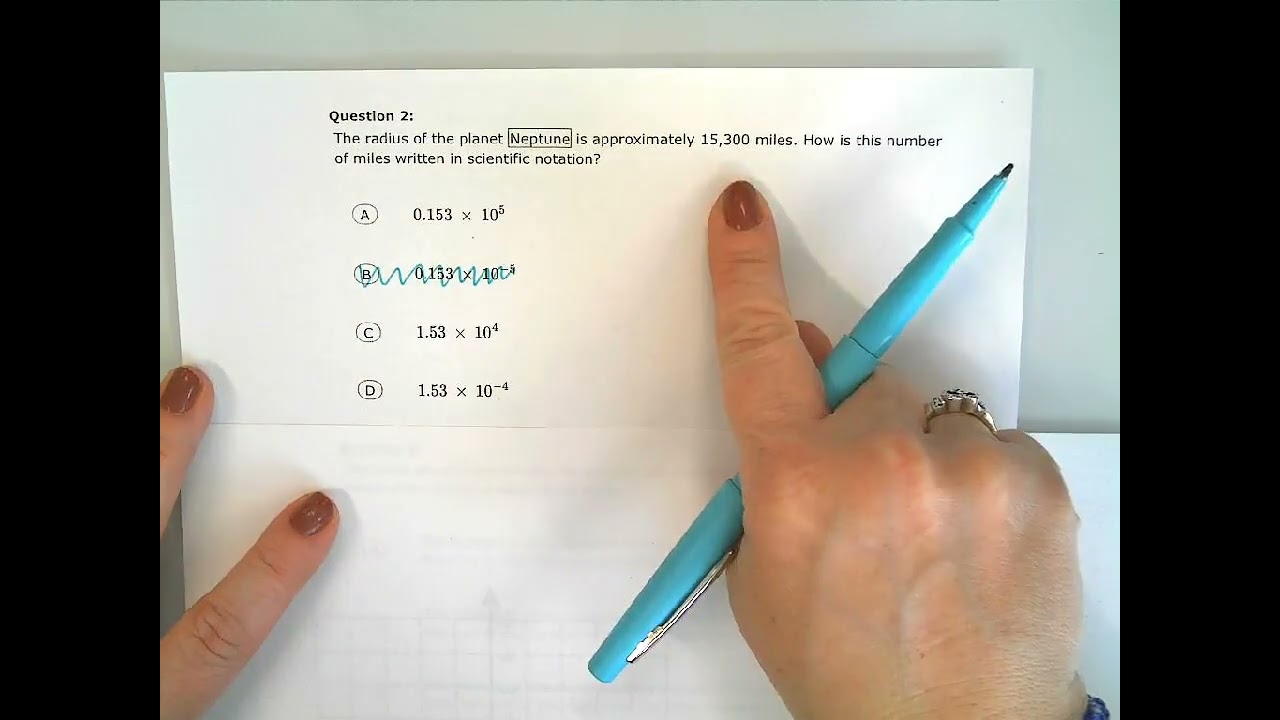 Question 2:
The radius of the planet Neptune is approximately 15,300 miles. How is this number
of miles written in scientific notation?
A 0.153 × 10⁵
B 0.153 × 10⁻⁵
C 1.53 × 10⁴
D 1.53 × 10⁻⁴